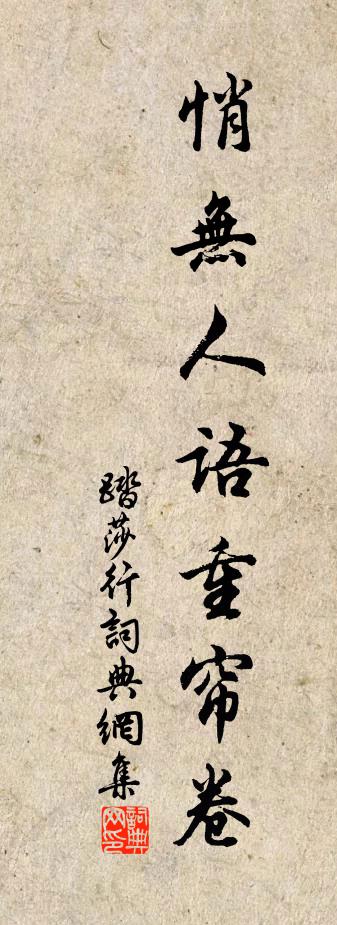 悄無人語重帘卷
踏莎行詞典網集
詞典网印